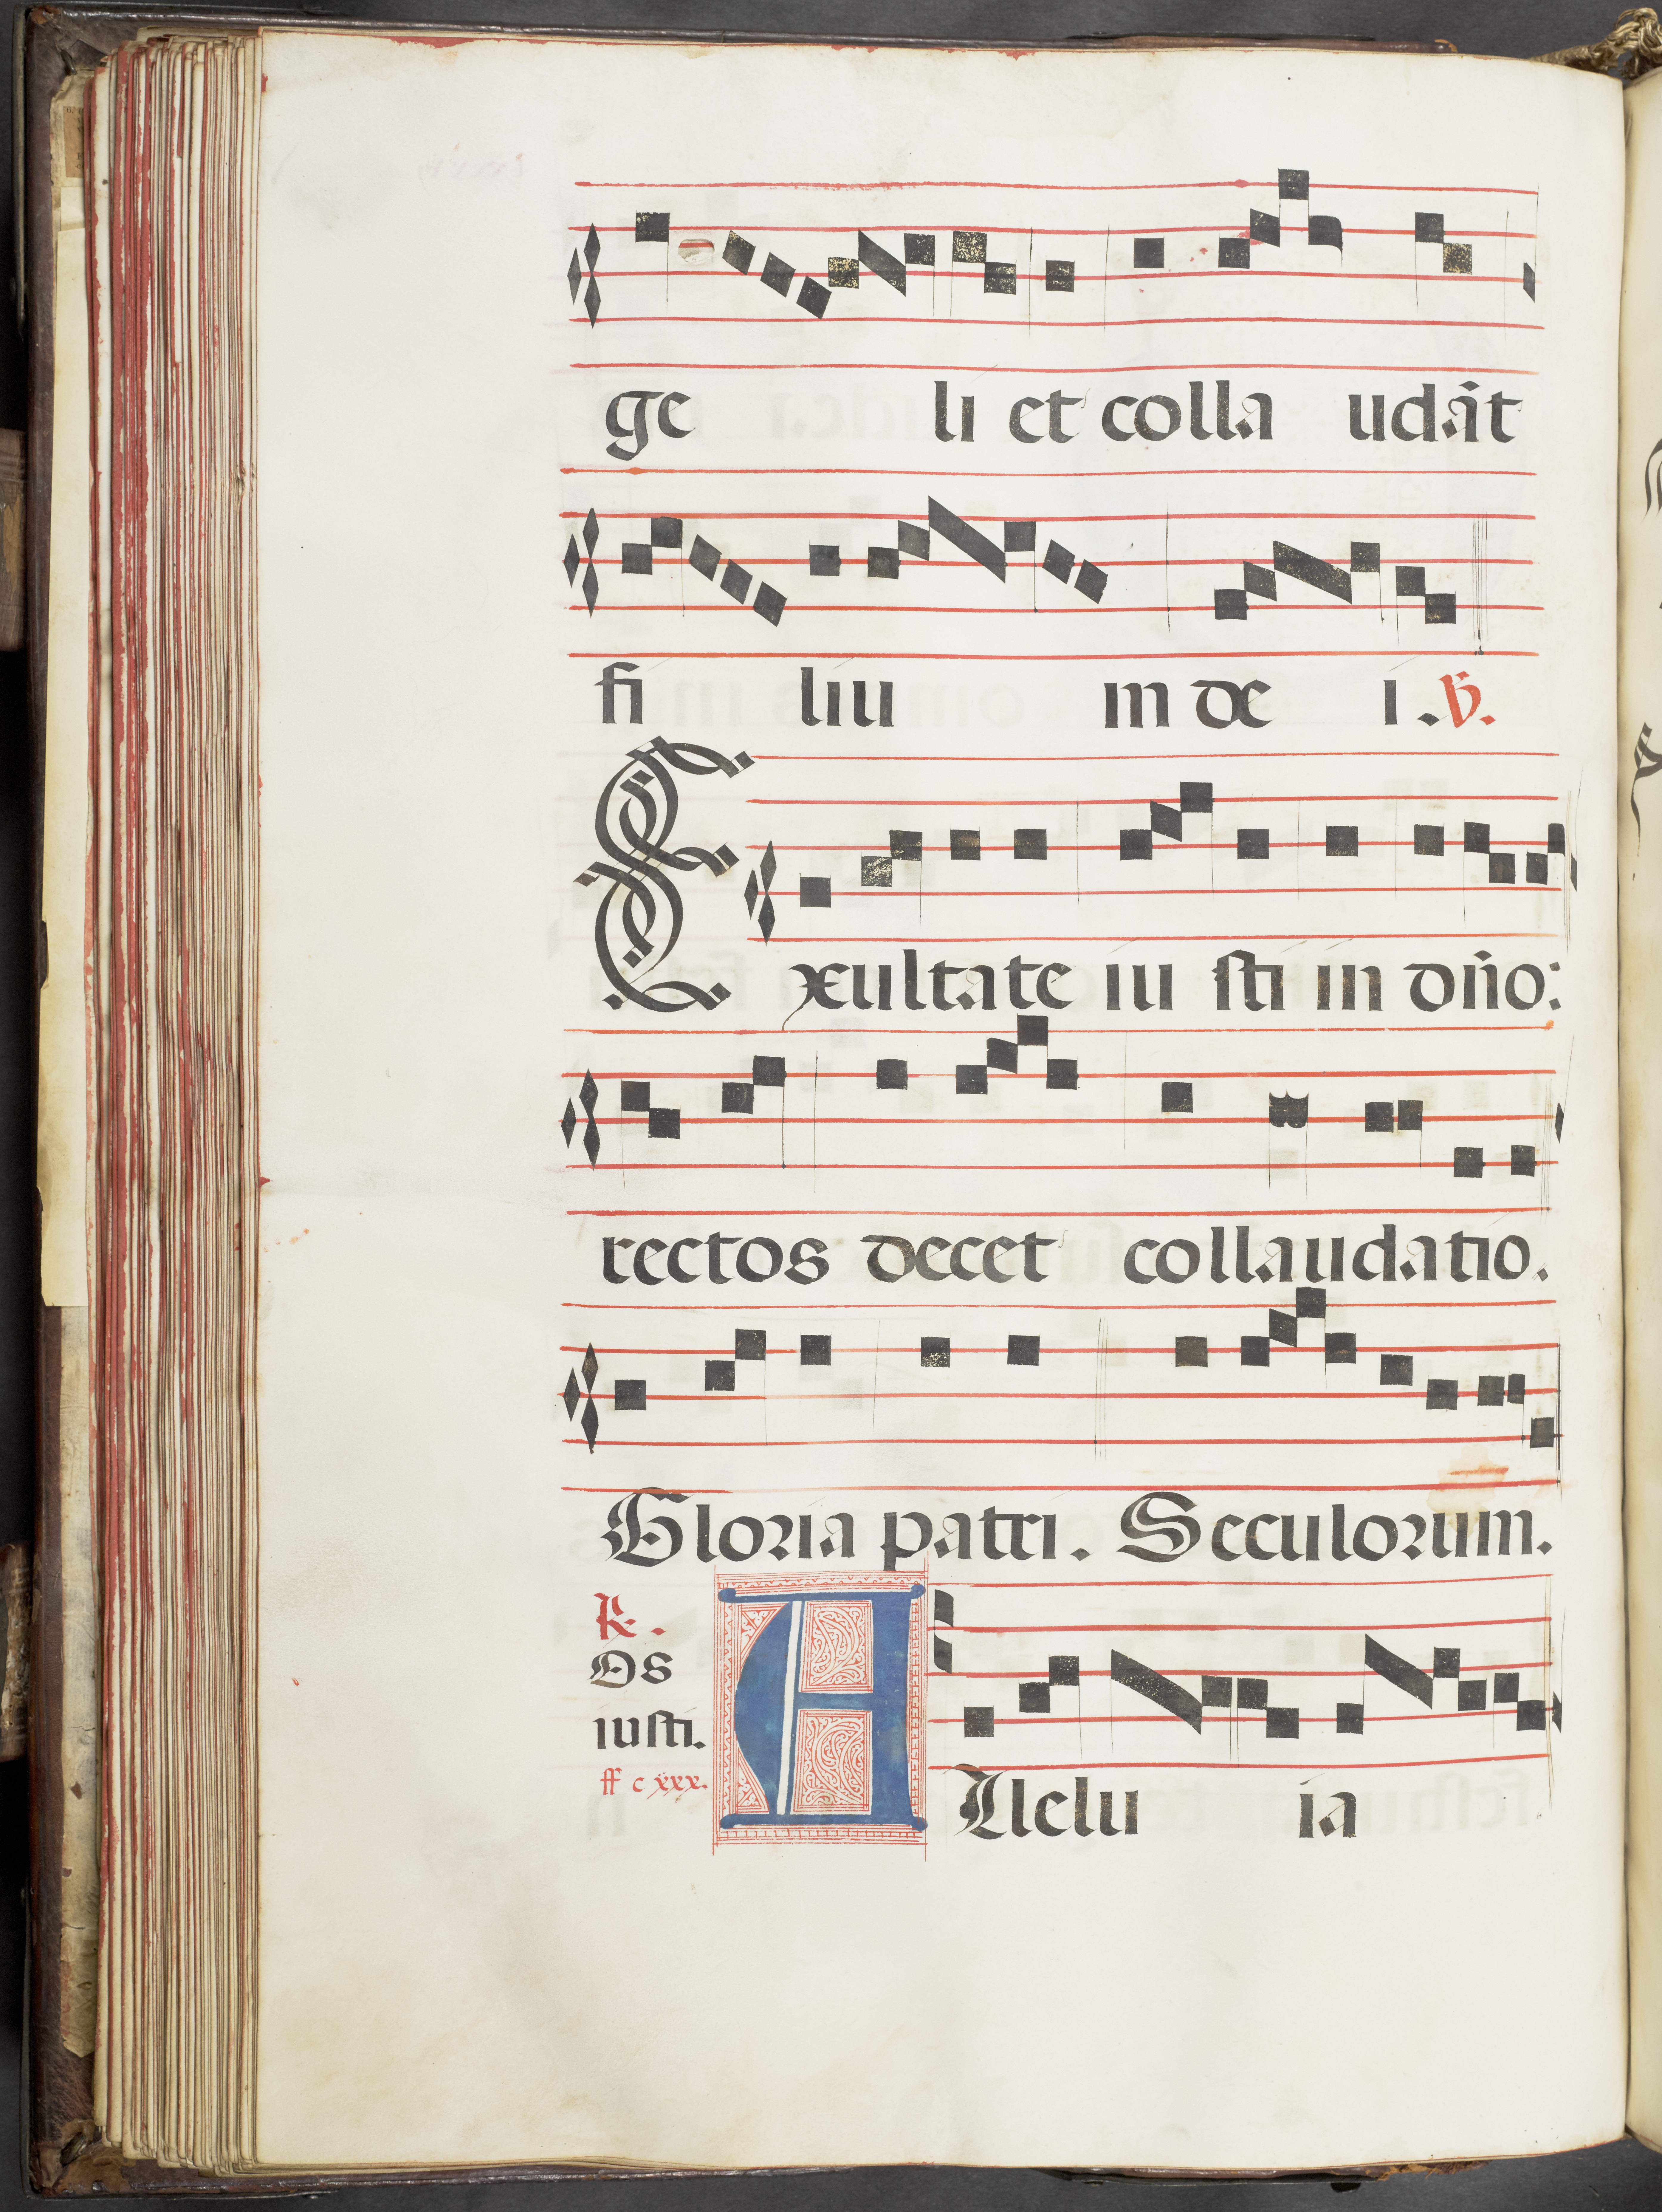 ge li et colla udāt
fi liu m de i. ℣.
Exultate iu sti in dn̄o:
rectos decet collaudatio.
Gloria patri. Seculorum.
℟.
Os
iusti.
ff c xxx.
Allelu ia